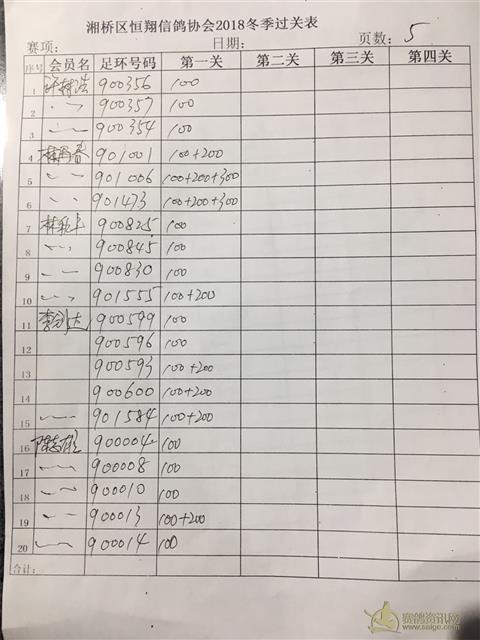 湘桥区恒翔信鸽协会2018冬季过关表
赛项: 日期: 页数: 5
序号 会员名 足环号码 第一关 第二关 第三关 第四关
1 900356 100
2 〃 900357 100
3 〃 900354 100
4 901001 100+200
5 〃 901006 100+200+300
6 〃 901473 100+200+300
7 900825 100
8 〃 900845 100
9 〃 900830 100
10 〃 901555 100+200
11 900599 100
12 900596 100
13 900593 100+200
14 900600 100+200
15 〃 901584 100+200
16 900004 100
17 〃 900008 100
18 〃 900010 100
19 〃 900013 100+200
20 〃 900014 100
合计:
赛鸽资讯网
www.saige.com